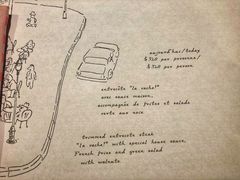 aujourd'hui/today
$320 par personne/
$320 per person
entrecôte "la vache!"
avec sauce maison,
accompagnée de frites et salade
verte aux noix
trimmed entrecote steak
"la vache!" with special house sauce,
French fries and green salad
with walnuts